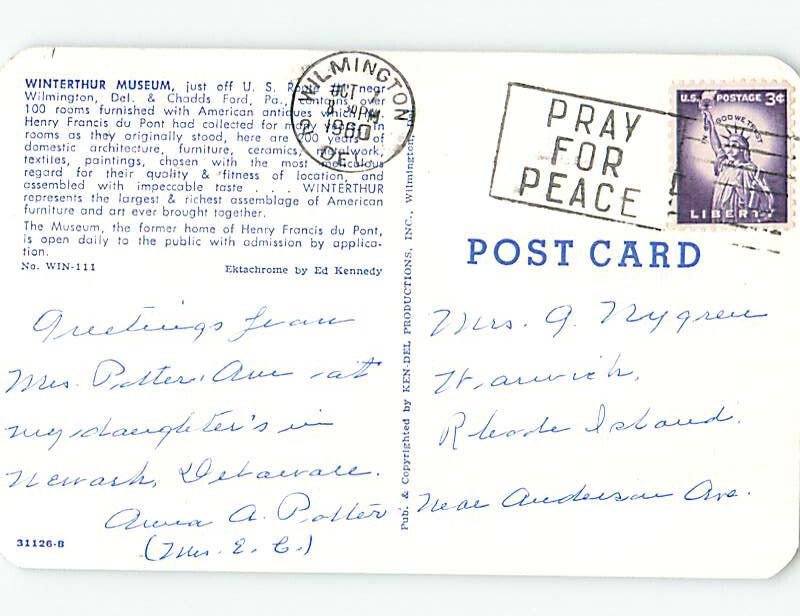 WINTERTHUR MUSEUM, just off U. S. near
Wilmington, Del. & Chadds Ford, Pa., contains over
100 rooms furnished with American antiques which
Henry Francis du Pont had collected for many years. In
rooms as they originally stood, here are 200 years of
domestic architecture, furniture, ceramics, metalwork,
textiles, paintings, chosen with the most meticulous
regard for their quality & fitness of location, and
assembled with impeccable taste . . . WINTERTHUR
represents the largest & richest assemblage of American
furniture and art ever brought together.
The Museum, the former home of Henry Francis du Pont,
is open daily to the public with admission by applica-
tion.
No. WIN-111 Ektachrome by Ed Kennedy
Greetings from
Mrs. Potter. Am at
my daughter's in
Newark, Delaware.
Anna A. Potter
(Mrs. E. C.)
31126-B
Pub. & Copyrighted by KEN-DEL PRODUCTIONS, INC., Wilmington,
WILMINGTON
OCT
8 30 PM
1960
DEL.
PRAY
FOR
PEACE
U.S. POSTAGE 3¢
IN GOD WE TRUST
LIBERTY
POST CARD
Mrs. A. Nygren
Warwick,
Rhode Island.
Near Anderson Ave.